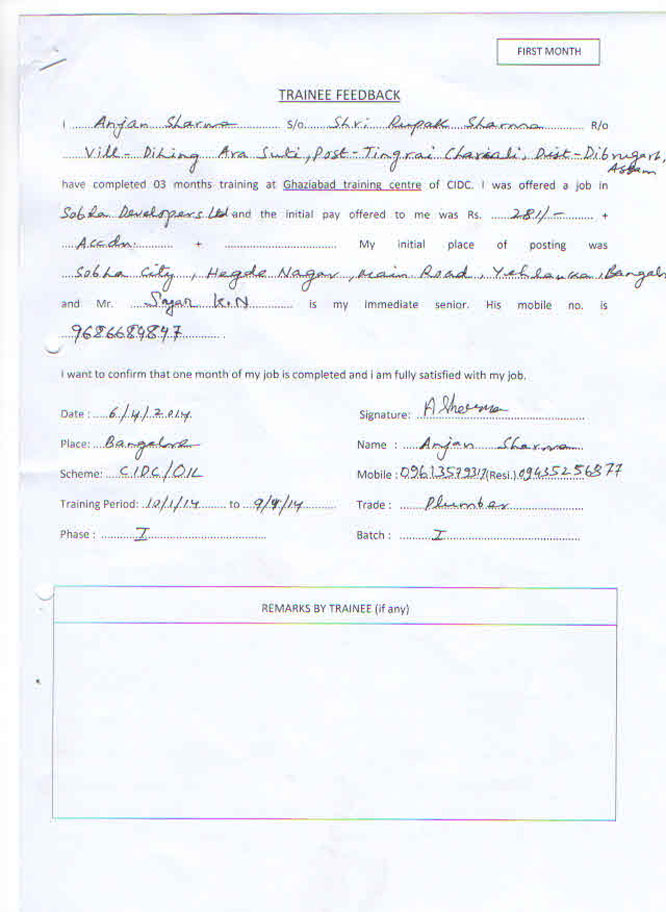 FIRST MONTH
TRAINEE FEEDBACK
I Anjan Sharma S/o Shri Rupak Sharma R/o
Vill- Dihing Ara Suti, Post-Tingrai Chariali, Dist-Dibrugarh,
Assam
have completed 03 months training at Ghaziabad training centre of CIDC. I was offered a job in
Sobha Developers Ltd and the initial pay offered to me was Rs. 281/- +
Accdn. + My initial place of posting was
Sobha City, Hegde Nagar, Main Road, Yehlanka, Bangal
and Mr. Sajan K.N is my immediate senior. His mobile no. is
9686689847.
I want to confirm that one month of my job is completed and i am fully satisfied with my job.
Date: 6/4/2014 Signature: A Sharma
Place: Bangalore Name : Anjan Sharma
Scheme: CIDC/OIL Mobile : 09613579317 (Resi.) 09435256877
Training Period: 10/1/14 to 9/4/14 Trade : Plumber
Phase : I Batch : I
REMARKS BY TRAINEE (if any)